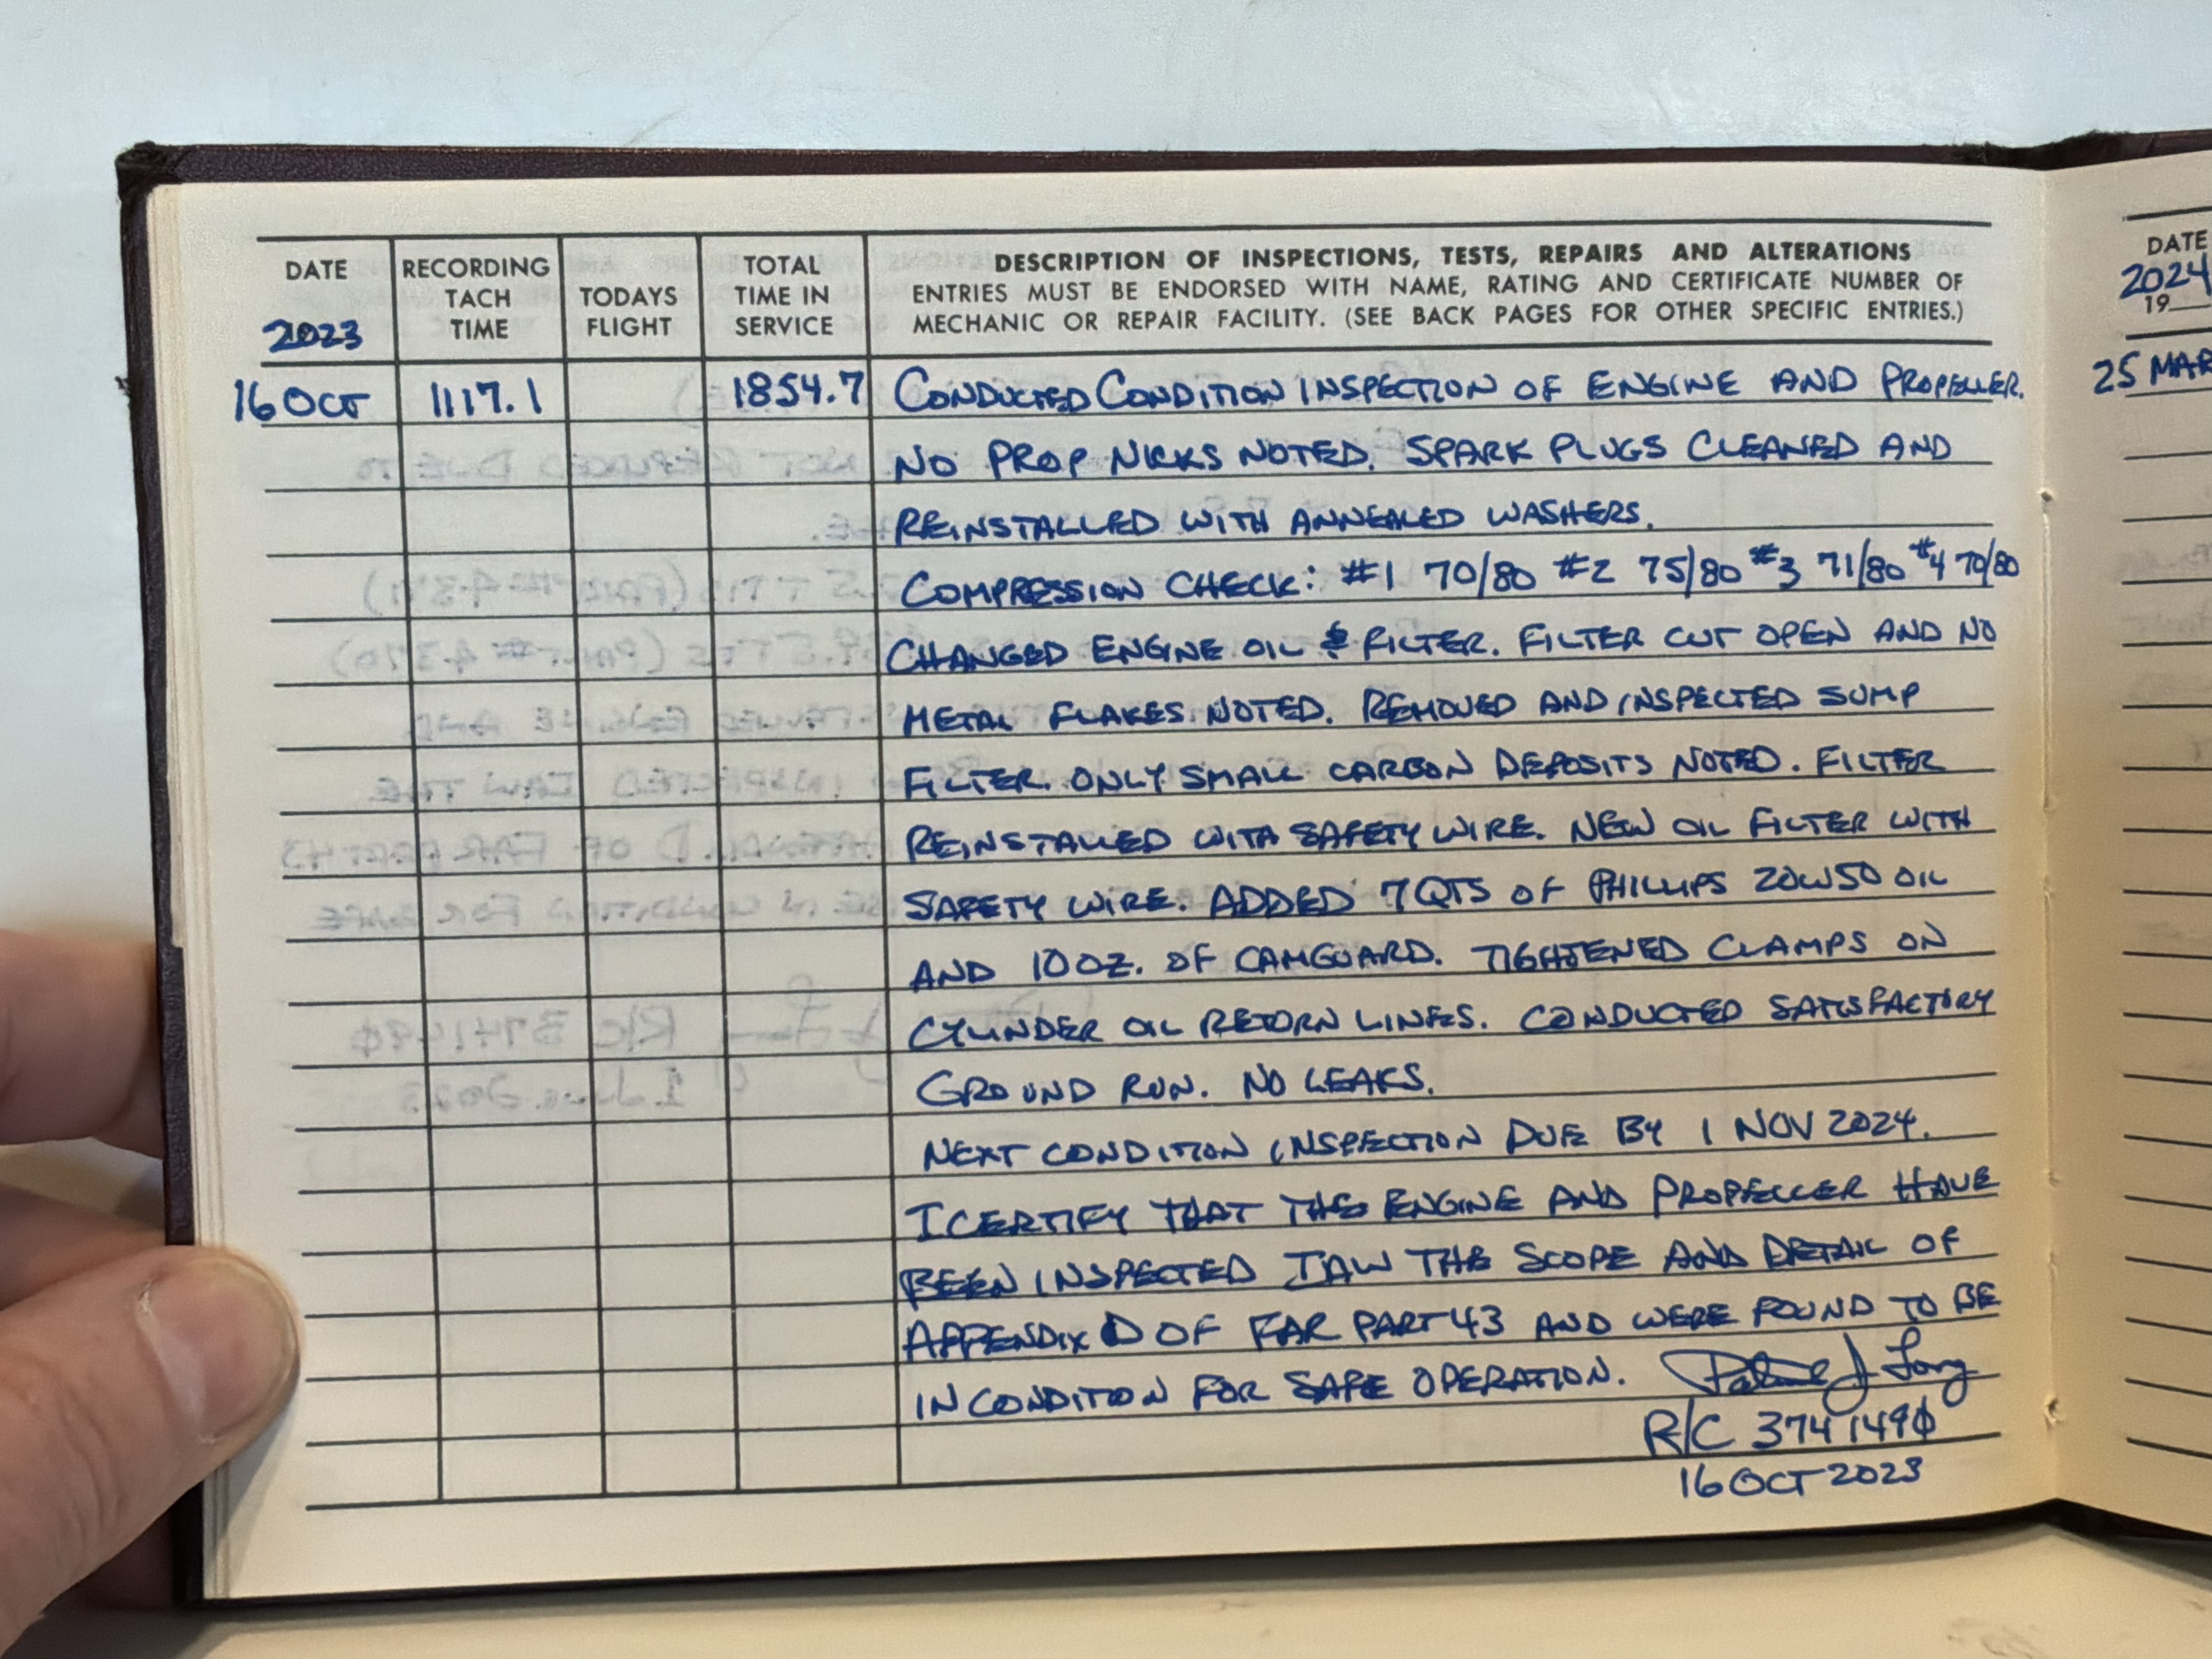 DATE
2023
RECORDING
TACH
TIME
TODAYS
FLIGHT
TOTAL
TIME IN
SERVICE
DESCRIPTION OF INSPECTIONS, TESTS, REPAIRS AND ALTERATIONS
ENTRIES MUST BE ENDORSED WITH NAME, RATING AND CERTIFICATE NUMBER OF
MECHANIC OR REPAIR FACILITY. (SEE BACK PAGES FOR OTHER SPECIFIC ENTRIES.)
16 OCT 1117.1 1854.7 CONDUCTED CONDITION INSPECTION OF ENGINE AND PROPELLER.
NO PROP NICKS NOTED. SPARK PLUGS CLEANED AND
REINSTALLED WITH ANNEALED WASHERS.
COMPRESSION CHECK: #1 70/80 #2 75/80 #3 71/80 #4 70/80
CHANGED ENGINE OIL & FILTER. FILTER CUT OPEN AND NO
METAL FLAKES NOTED. REMOVED AND INSPECTED SUMP
FILTER. ONLY SMALL CARBON DEPOSITS NOTED. FILTER
REINSTALLED WITH SAFETY WIRE. NEW OIL FILTER WITH
SAFETY WIRE. ADDED 7 QTS OF PHILLIPS 20W50 OIL
AND 10 OZ. OF CAMGUARD. TIGHTENED CLAMPS ON
CYLINDER OIL RETURN LINES. CONDUCTED SATISFACTORY
GROUND RUN. NO LEAKS.
NEXT CONDITION INSPECTION DUE BY 1 NOV 2024.
I CERTIFY THAT THE ENGINE AND PROPELLER HAVE
BEEN INSPECTED IAW THE SCOPE AND DETAIL OF
APPENDIX D OF FAR PART 43 AND WERE FOUND TO BE
IN CONDITION FOR SAFE OPERATION.
R/C 3741490
16 OCT 2023
DATE
2024
19
25 MAR